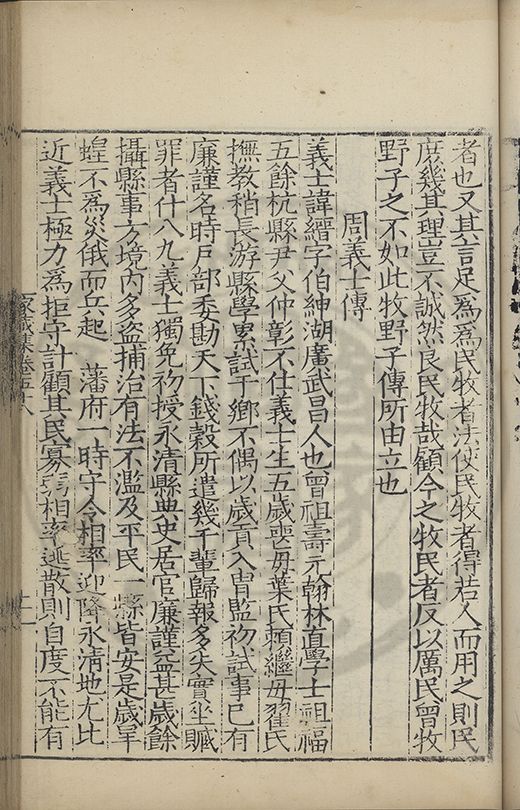 者也又其言足爲爲民牧者法使民牧者得若人而用之則民
庶幾其理豈不誠然良民牧哉顧今之牧民者反以厲民曾牧
野子之不如此牧野子傳所由立也
周義士傳
義士諱縉字伯紳湖廣武昌人也曾祖壽元翰林直學士祖福
五餘杭縣尹父仲彰不仕義士生五歲喪毋葉氏頼繼毋翟氏
撫教稍長游縣學累試于鄉不偶以歲貢入胄監初試事已有
廉謹名時戶部委勘天下錢穀所遣幾千輩歸報多失實坐贓
罪者什八九義士獨免初授永清縣典史居官廉謹益甚歲餘
攝縣事方境內多盜捕治有法不濫及平民一縣皆安是歲旱
蝗不為災俄而兵起 藩府一時守令相率迎降永清地尤比
近義士極力爲拒守計顧其民寡弱相率逃散則自度不能有
家藏集卷五十八
十二